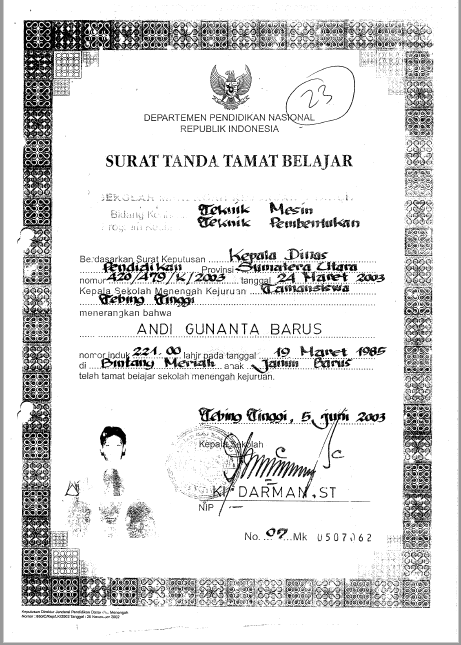 23
DEPARTEMEN PENDIDIKAN NASIONAL
REPUBLIK INDONESIA
SURAT TANDA TAMAT BELAJAR
SEKOLAH
Bidang Teknik Mesin
Teknik Pembentukan
Berdasarkan Surat Keputusan Kepala Dinas
Pendidikan Provinsi Sumatera Utara
nomor 420/479/K/2003 tanggal 24 Maret 2003
Kepala Sekolah Menengah Kejuruan Tamansiswa
Tebing Tinggi
menerangkan bahwa
ANDI GUNANTA BARUS
nomor induk 221.00 lahir pada tanggal 19 Maret 1985
di Bintang Meriah anak Jamin Barus
telah tamat belajar sekolah menengah kejuruan.
Tebing Tinggi, 5 Juni 2003
Kepala Sekolah
KI DARMAN, ST
NIP
No. 07 Mk